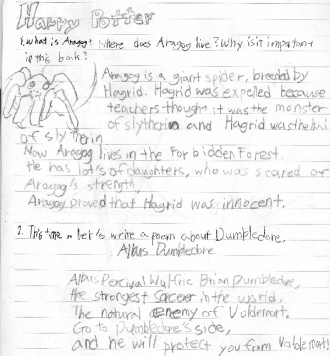 Harry Potter
1. What is Aragog? Where does Aragog live? Why is it important
in this book?
Aragog is a giant spider, breeded by
Hagrid. Hagrid was expelled because
teachers thought it was the monster
of slytherin and Hagrid was the heir
of slytherin.
Now Aragog lives in the Forbidden Forest.
He has lot's of daughters, who was scared of
Aragog's strength,
Aragog proved that Hagrid was innocent.
2. This time, let's write a poem about Dumbledore.
Albus Dumbledore
Albus Percival Wulfric Brian Dumbledore,
the strongest in the world.
The natural enemy of Voldemort.
Go to Dumbledore's side,
and he will protect you from Voldemort!